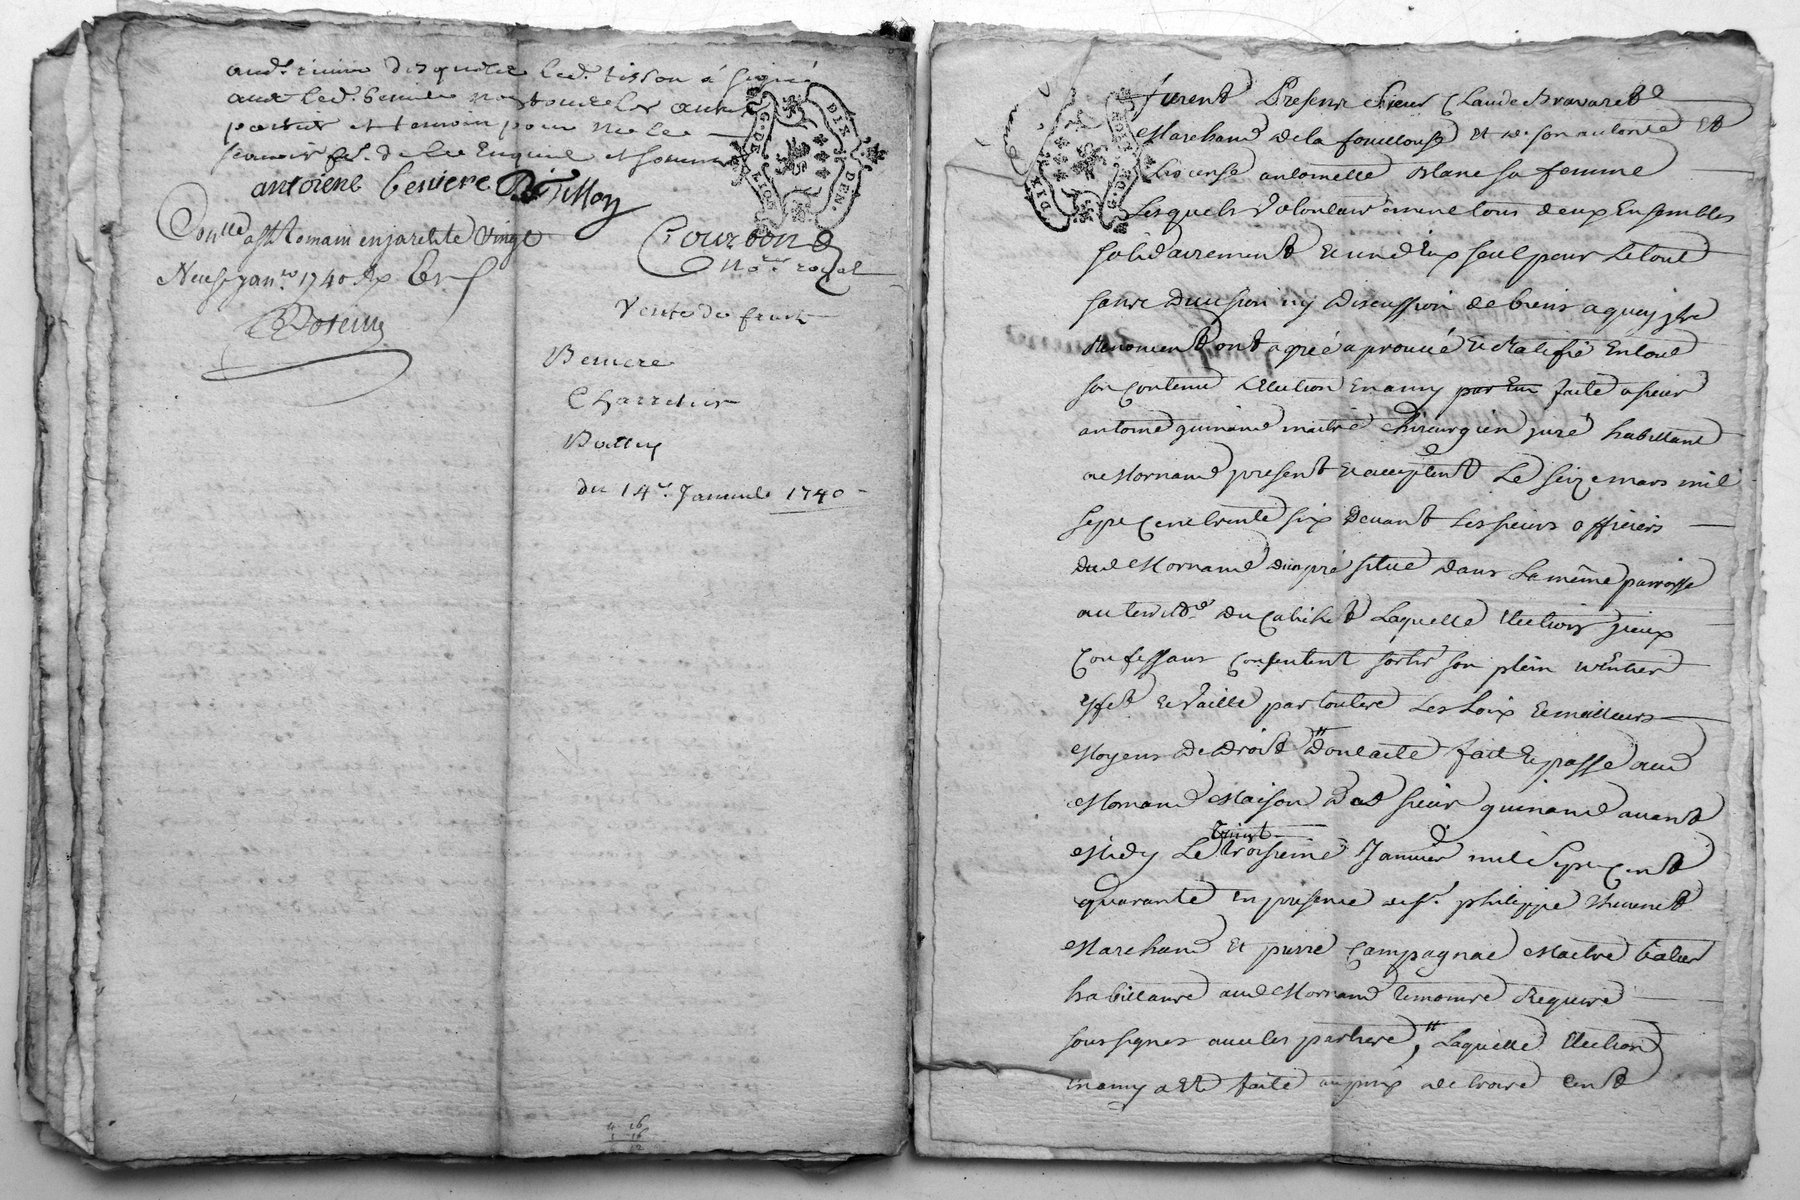 aud. disquelez led. tisson á signé
auec led. beniere non touteles autre
parties et temoin pour ne le
scauoir fe. de lee Enquis et sommé
antoiene beniere Tisson
G. DE LION DIX DEN.
Conllé a St Romain en jarelste Vingt
Neuf janer 1740
Courbon
Nore. royal
Vente de
Beniere
Charretier
du 14e. Januier 1740
furent Presens Sieur Claude Brauaret
Marchand de la fouillouse et de son autorité et
License antoinette Blanc sa femme
Lesquels Volontairement tous deux Ensembles
solidairement et un d'Eux seul pour Le tout
sans Diuision ny Discussion de biens a quoy ils
Renoncent ont agréé aprouué et Ratifié En tout
son Contenu L'Election En amy faite a sieur
antoine guinand maitre Chirurgien juré habittant
a Mornand present et acceptant Le seize mars mil
sept Cent trente six Deuant Les sieurs officiers
dud Mornand d'un pré situé dans La même parroisse
au terrid. du Cahihet Laquelle Election yceux
Confessans Consentent sortir son plein et Entier
effet et Vaille par toutes Les Loix et meilleurs
Moyens de Droit Dont acte fait et passé aud
Mornand Maison dud sieur guinand auant
Midy Le Vingt troisieme Januier mil Sept Cent
quarante en presence de sr. philippe Thuenet
Marchand et pierre Campagnac Maitre
habittants aud Mornand temoins Requis
soussignes auec les parties, Laquelle Election
en amy a Eté faite au prix de trois Cent
4 16